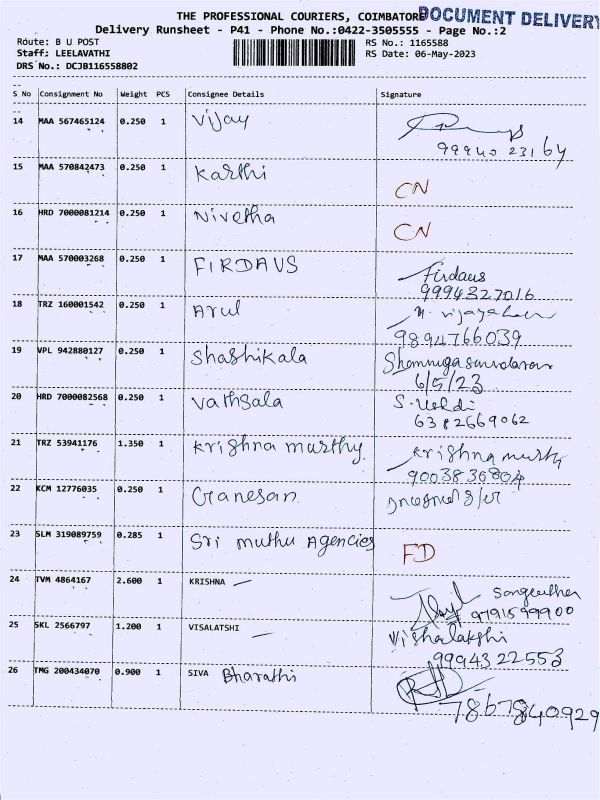 THE PROFESSIONAL COURIERS, COIMBATORE
DOCUMENT DELIVERY
Delivery Runsheet - P41 - Phone No.:0422-3505555 - Page No.:2
Route: B U POST
RS No.: 1165588
Staff: LEELAVATHI
RS Date: 06-May-2023
DRS No.: DCJB116558802
S No Consignment No Weight PCS Consignee Details Signature
14 MAA 567465124 0.250 1 Vijay
99940 23164
15 MAA 570842473 0.250 1 Karthi CN
16 HRD 7000081214 0.250 1 Nivetha CN
17 MAA 570003268 0.250 1 FIRDAUS Firdaus
9994327016
18 TRZ 160001542 0.250 1 Arul
9894766039
19 VPL 942880127 0.250 1 Shashikala Shanmugasundaram
6/5/23
20 HRD 7000082568 0.250 1 Vathsala
6382669062
21 TRZ 53941176 1.350 1 Krishna murthy Krishna
9003836804
22 KCM 12776035 0.250 1 Ganesan
23 SLM 319089759 0.285 1 Sri muthu Agencies FD
24 TVM 4864167 2.600 1 KRISHNA Sangeetha
9791599900
25 SKL 2566797 1.200 1 VISALATSHI Vishalakshi
9994322553
26 TMG 200434070 0.900 1 SIVA Bharathi
7867840929